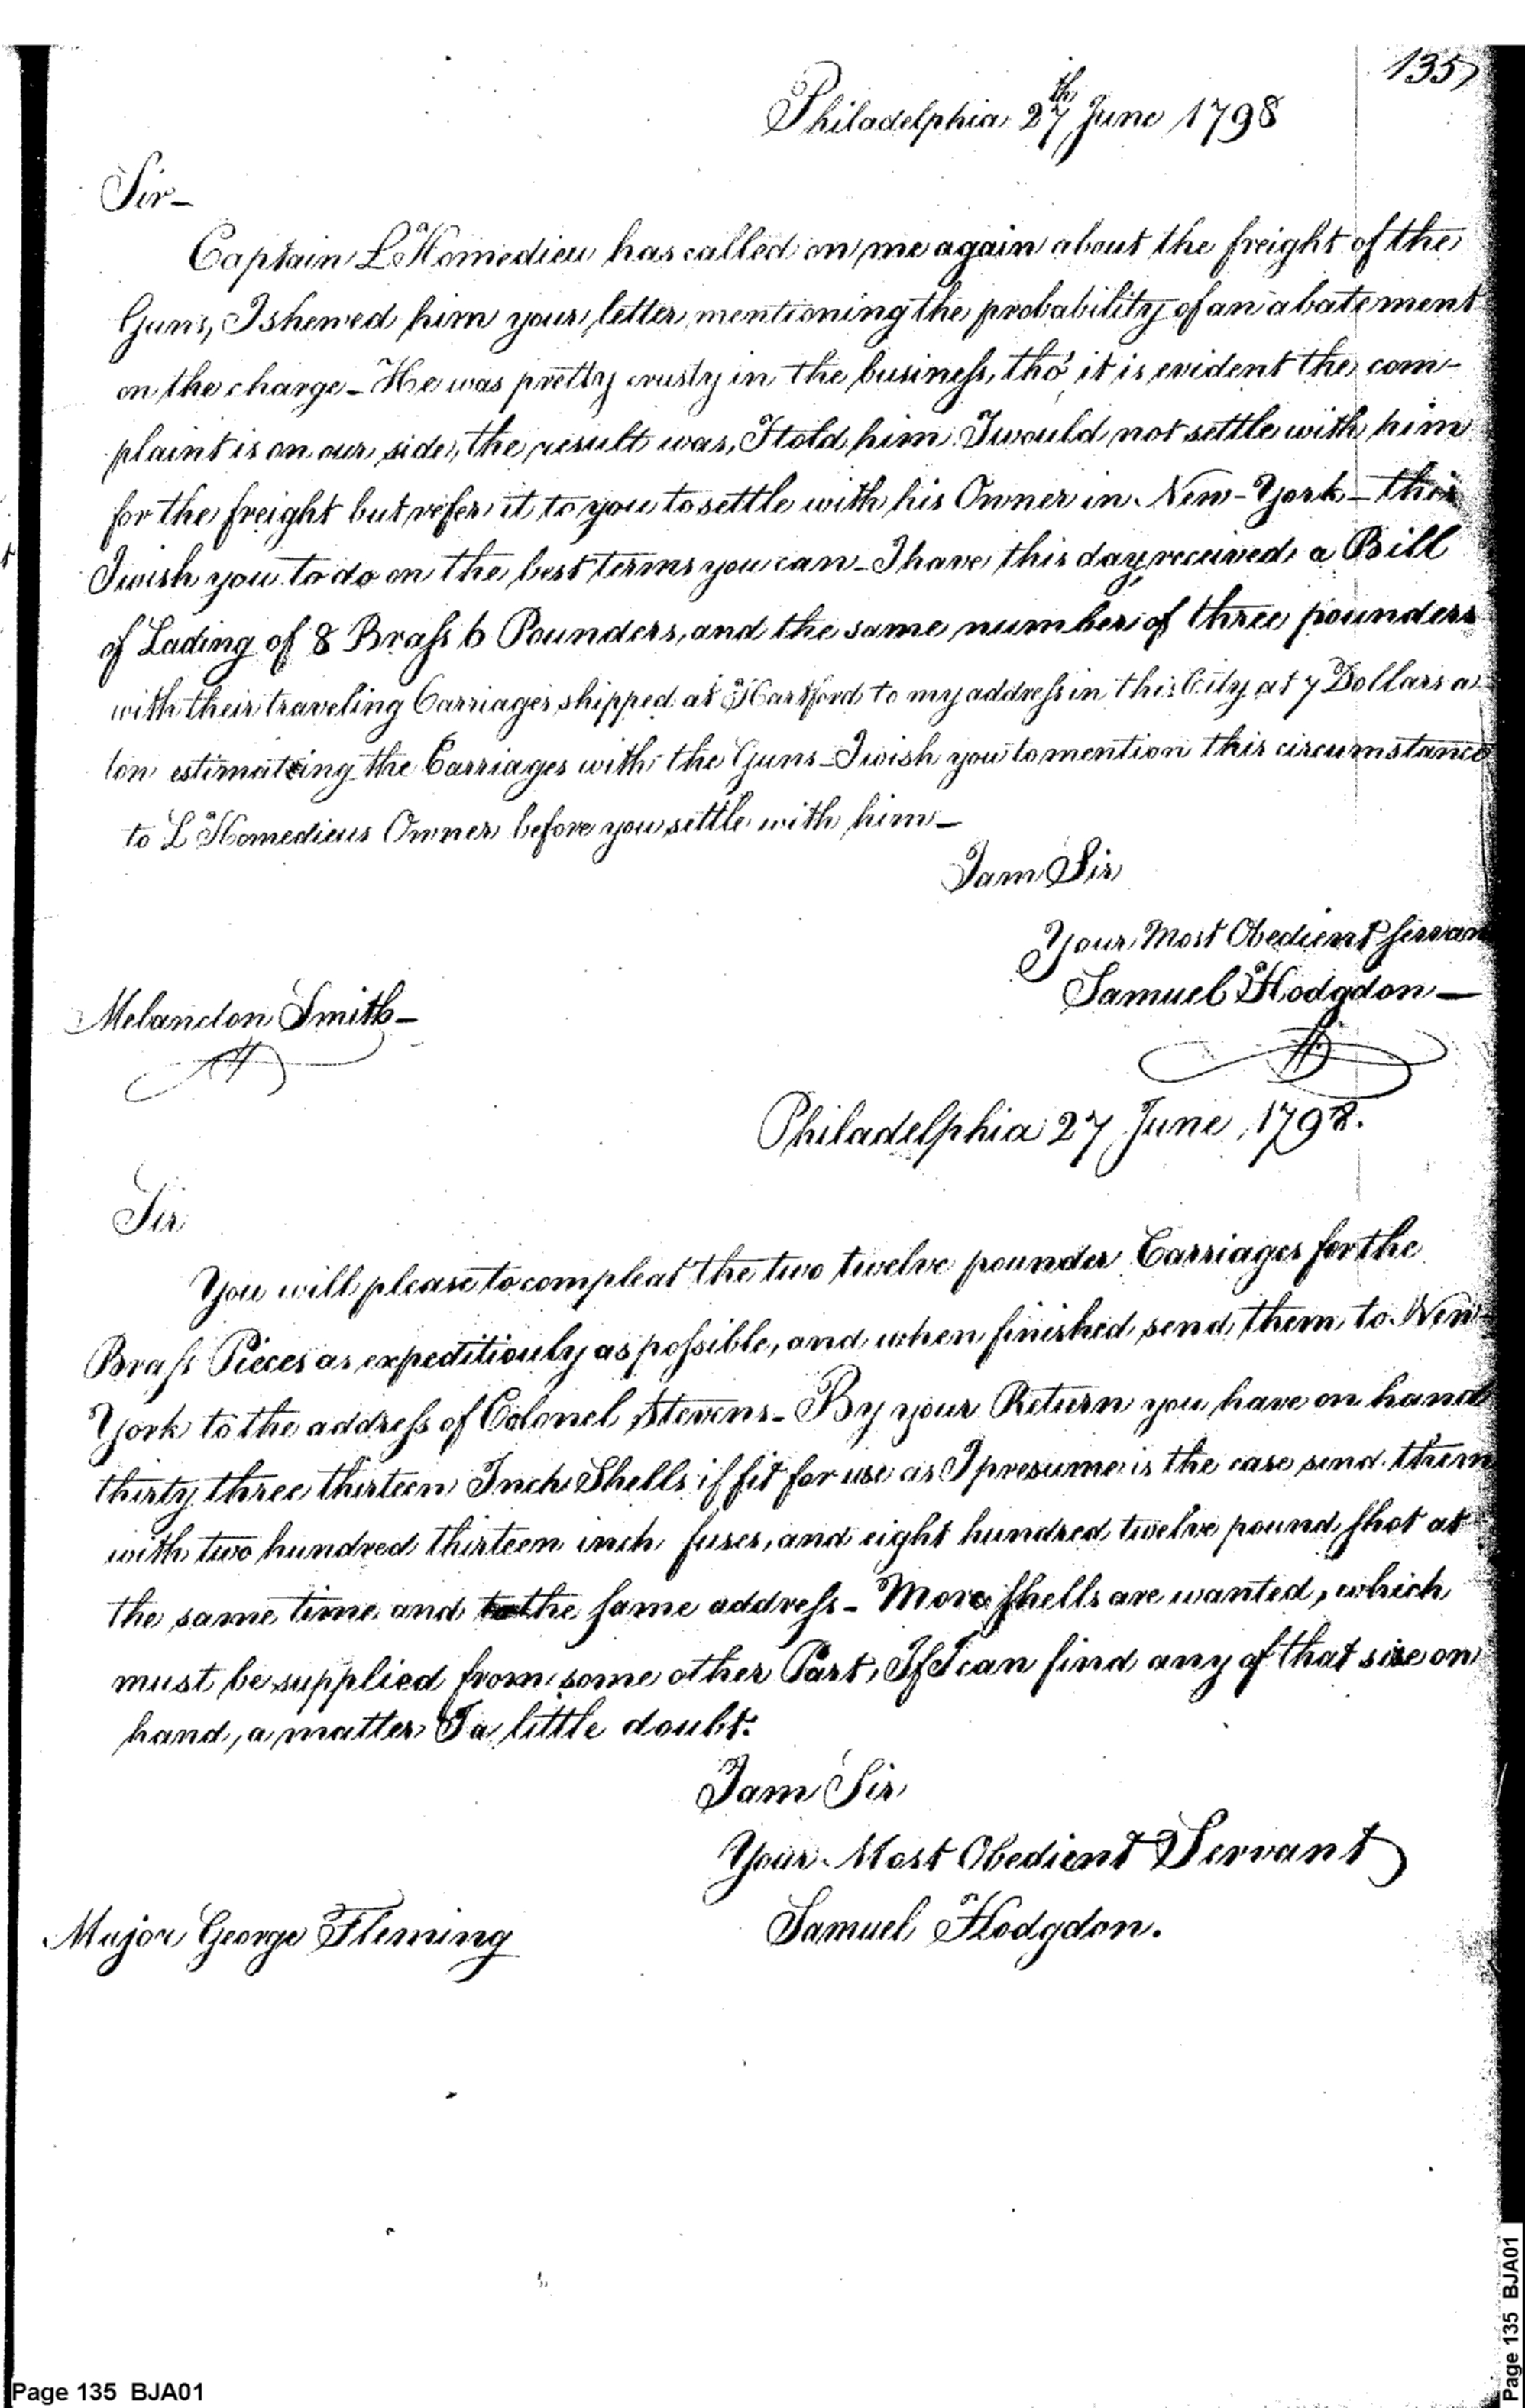 135
Philadelphia 27th June 1798
Sir-
Captain L'Homedieu has called on me again about the freight of the
Guns, I shewed him your letter mentioning the probability of an abatement
on the charge - He was pretty crusty in the business, tho' it is evident the com-
plaint is on our side, the result was, I told him I would not settle with him
for the freight but refer it to you to settle with his Owner in New-York - this
I wish you to do on the best terms you can - I have this day received a Bill
of Lading of 8 Brass 6 Pounders, and the same number of three pounders
with their traveling Carriages shipped at Hartford to my address in this City at 7 Dollars a
ton estimating the Carriages with the Guns - I wish you to mention this circumstance
to L'Homedieus Owner before you settle with him -
I am Sir
Your Most Obedient Servan
Samuel Hodgdon -
Melancton Smith -
Philadelphia 27 June 1798.
Sir
You will please to compleat the two twelve pounder Carriages for the
Brass Pieces as expeditiouly as possible, and when finished send them to New-
York to the address of Colonel Stevens - By your Return you have on hand
thirty three thirteen Inch Shells if fit for use as I presume is the case send them
with two hundred thirteen inch fuses, and eight hundred twelve pound shot at
the same time and to the same address - More shells are wanted, which
must be supplied from some other Part, If I can find any of that size on
hand, a matter I a little doubt.
I am Sir
Your Most Obedient Servant
Samuel Hodgdon.
Major George Fleming
Page 135 BJA01
Page 135 BJA01